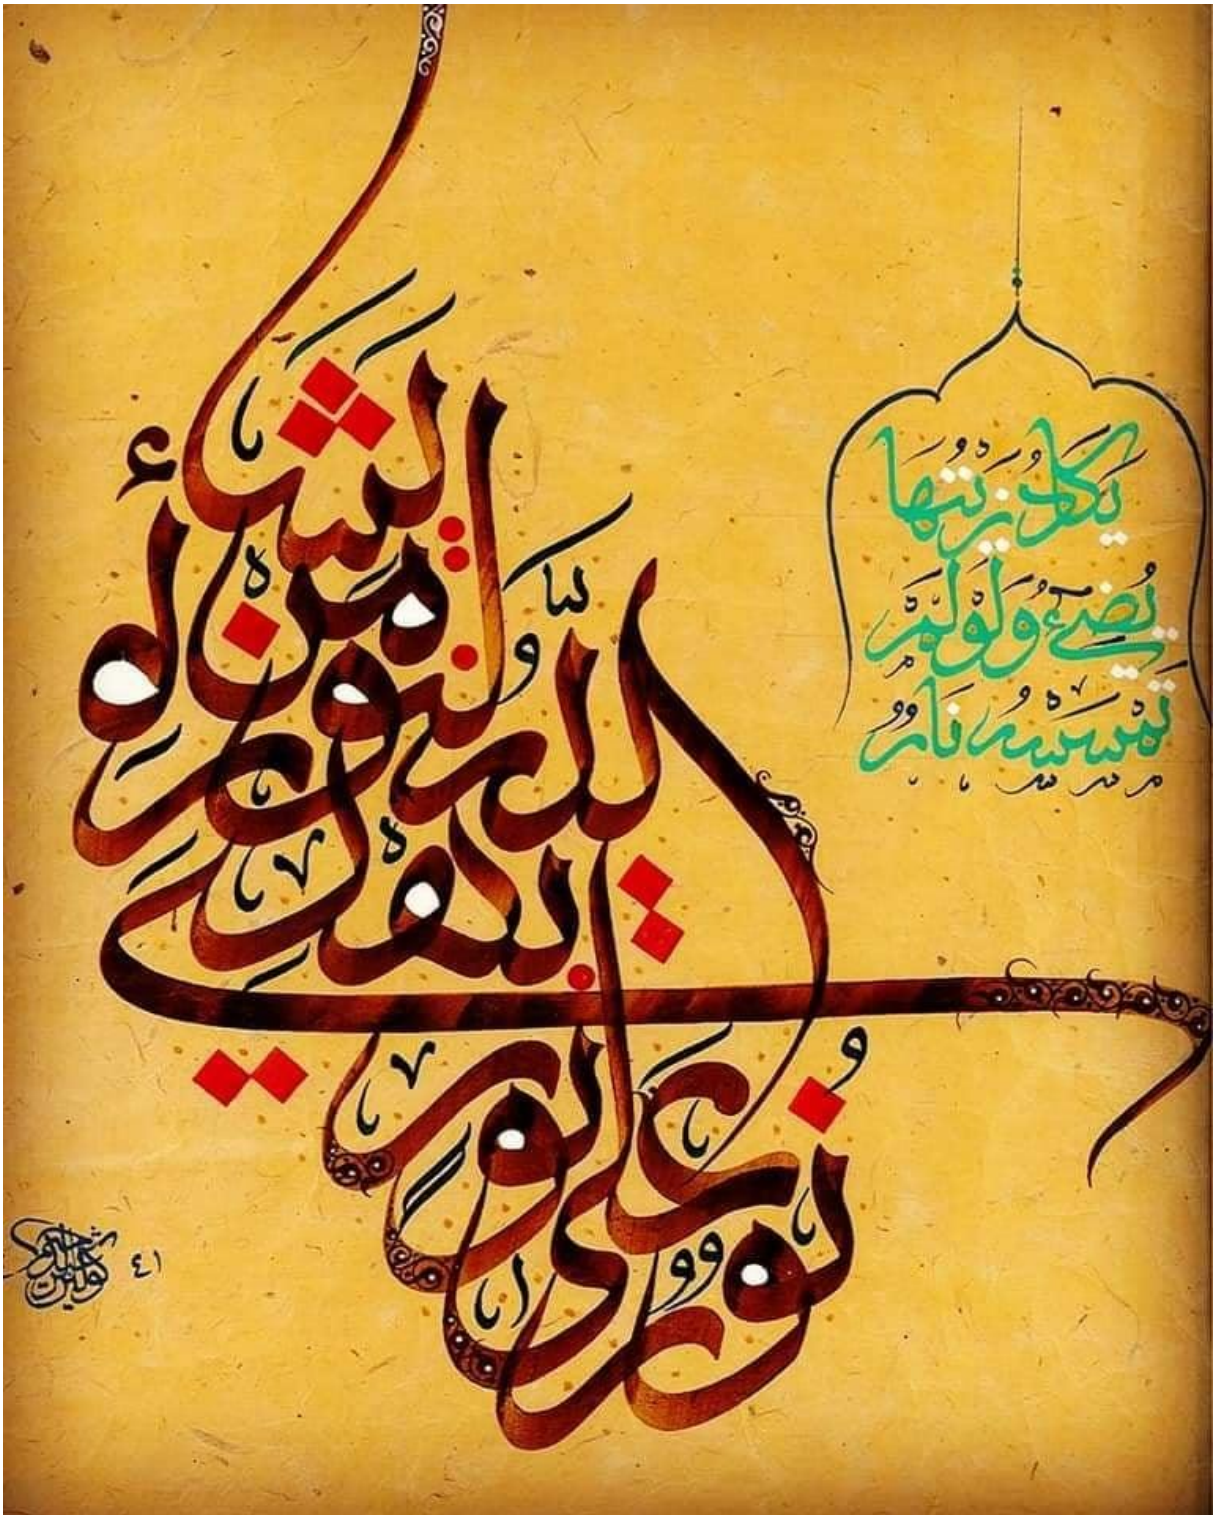 يَكَادُ زَيْتُهَا
يُضِيٓءُ وَلَوْ لَمْ
تَمْسَسْهُ نَارٌ
نُورٌ عَلَىٰ نُورٍ
يَهْدِي اللَّهُ لِنُورِهِ مَن يَشَاءُ
٤١